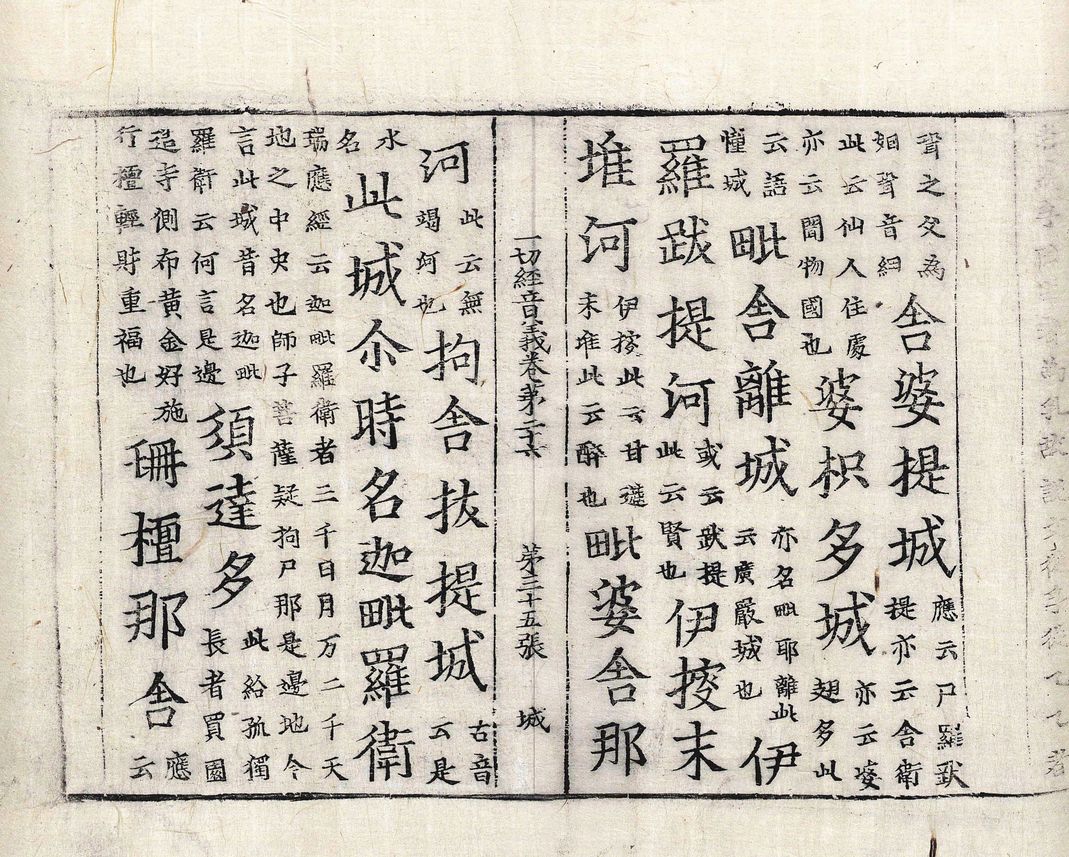 聟之父為
姻聟音細
舍婆提城
應云尸羅跋
提亦云舍衛
此云仙人住處
亦云聞物國也
婆枳多城
亦云婆
翅多此
云語
憧城
毗舍離城
亦名毗耶離此
云廣嚴城也
伊
羅跋提河
或云跋提
此云賢也
伊搲末
堆河
伊搲此云甘
末堆此云醉也
毗婆舍那
一切經音義卷第二十六 第三十五張 城
河
此云無
竭河也
拘舍拔提城
古音
云是
水
名
此城尒時名迦毗羅衛
瑞應經云迦毗羅衛者三千日月万二千天
地之中央也師子菩薩疑拘尸那是邊地今
言此城昔名迦毗
羅衛云何言是邊
須達多
此給孤獨
長者買園
造寺側布黄金好施
行檀輕財重福也
冊檀那舍
應
云